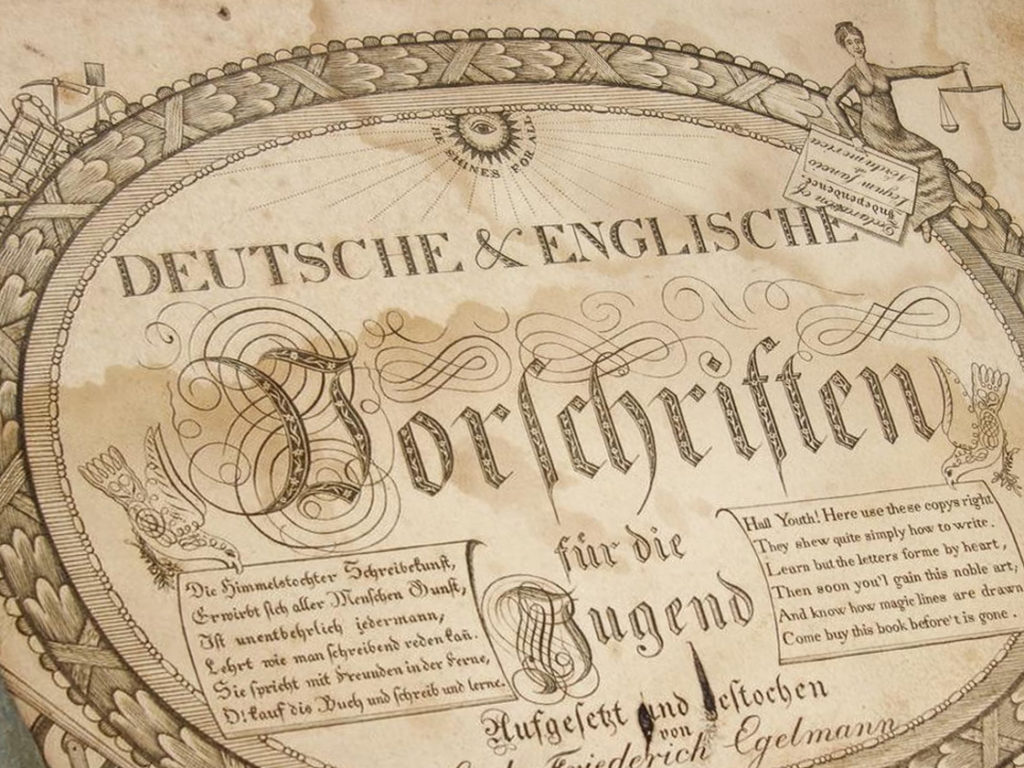 HE SHINES FOR ALL
Declaration of
Independence
Legum Junciis
North america
DEUTSCHE & ENGLISCHE
Vorschriften
für die
Jugend
Die Himmelstochter Schreibekunst,
Erwirbt sich aller Menschen Gunst,
Ist unentbehrlich jedermann,
Lehrt wie man schreibend reden kañ.
Sie spricht mit Freunden in der Ferne,
O! kauf dis Buch und schreib und lerne.
Hail Youth! Here use these copys right
They shew quite simply how to write.
Learn but the letters forme by heart,
Then soon you'l gain this noble art,
And know how magic lines are drawn
Come buy this book before't is gone.
Aufgesetzt und gestochen
von
Friederich Egelmann